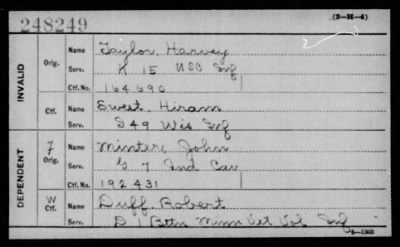 248249
(3-H-4)
INVALID
Orig.
Name Taylor Harvey
Serv. K 15 USC Inf
Ctf. No. 164690
Ctf.
Name Sweet Hiram
Serv. S 49 Wis Inf
DEPENDENT
Orig.
Name Minter John
Serv. G 7 Ind Cav
Ctf. No. 192431
W
Ctf.
Name Duff Robert
Serv. D 1 Battn Minn Vet Vol Inf